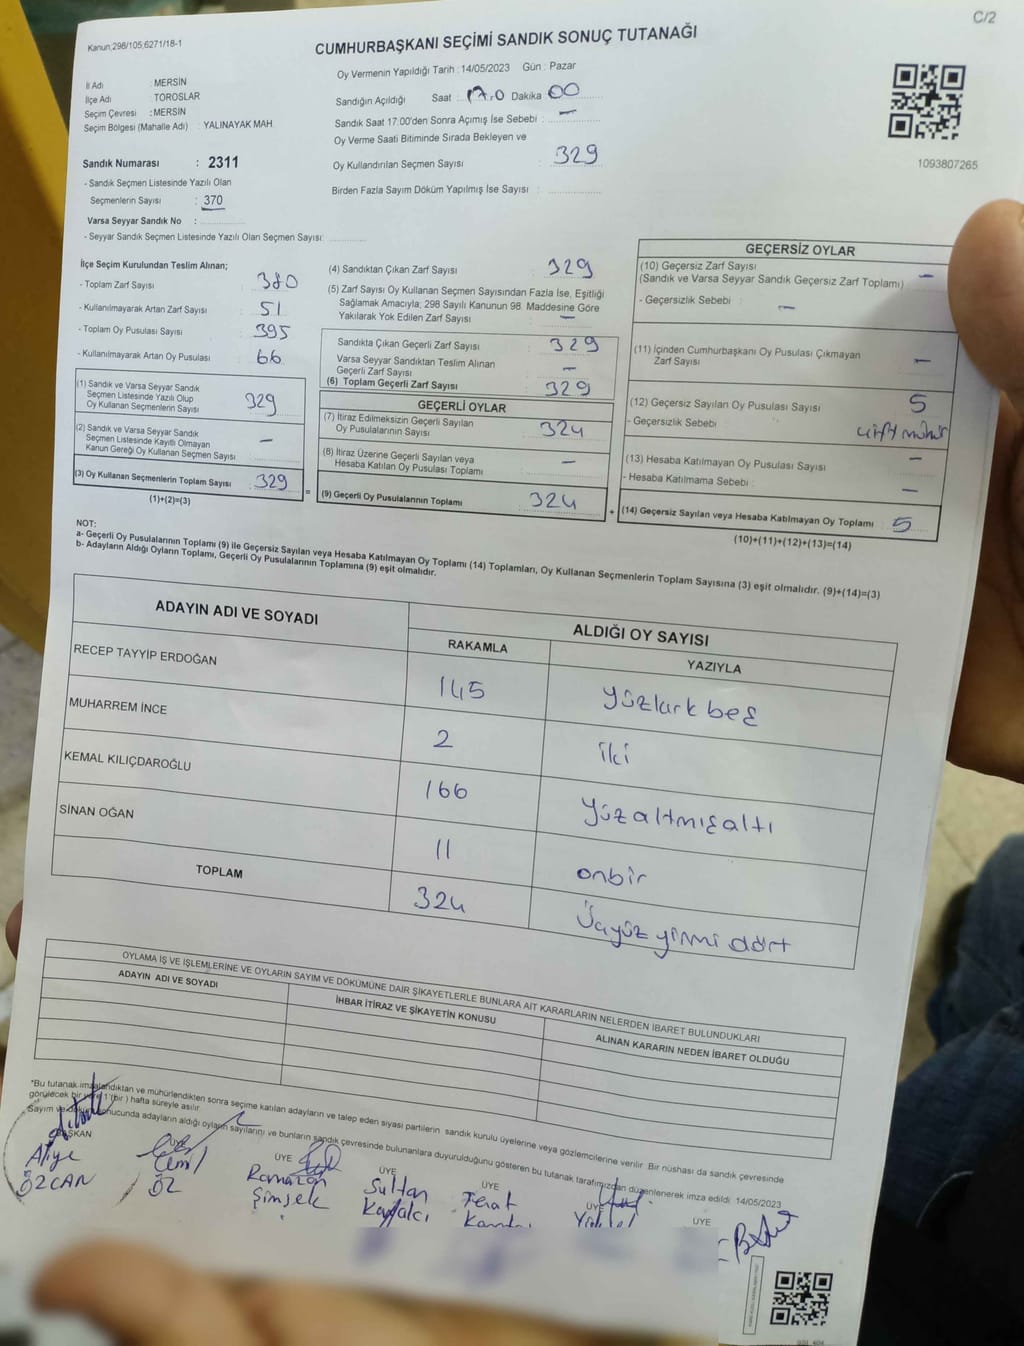 C/2
Kanun;298/105;6271/18-1
CUMHURBAŞKANI SEÇİMİ SANDIK SONUÇ TUTANAĞI
İl Adı : MERSİN
İlçe Adı : TOROSLAR
Seçim Çevresi : MERSİN
Seçim Bölgesi (Mahalle Adı) : YALINAYAK MAH
Sandık Numarası : 2311
- Sandık Seçmen Listesinde Yazılı Olan
Seçmenlerin Sayısı : 370
Varsa Seyyar Sandık No :
- Seyyar Sandık Seçmen Listesinde Yazılı Olan Seçmen Sayısı:
Oy Vermenin Yapıldığı Tarih : 14/05/2023 Gün : Pazar
Sandığın Açıldığı Saat : 17.0 Dakika 00
Sandık Saat 17:00'den Sonra Açımış İse Sebebi : —
Oy Verme Saati Bitiminde Sırada Bekleyen ve
Oy Kullandırılan Seçmen Sayısı : 329
Birden Fazla Sayım Döküm Yapılmış İse Sayısı :
1093807265
İlçe Seçim Kurulundan Teslim Alınan;
- Toplam Zarf Sayısı : 380
- Kullanılmayarak Artan Zarf Sayısı : 51
- Toplam Oy Pusulası Sayısı : 395
- Kullanılmayarak Artan Oy Pusulası : 66
(1) Sandık ve Varsa Seyyar Sandık
Seçmen Listesinde Yazılı Olup
Oy Kullanan Seçmenlerin Sayısı : 329
(2) Sandık ve Varsa Seyyar Sandık
Seçmen Listesinde Kayıtlı Olmayan
Kanun Gereği Oy Kullanan Seçmen Sayısı : —
(3) Oy Kullanan Seçmenlerin Toplam Sayısı : 329
(1)+(2)=(3)
=
(4) Sandıktan Çıkan Zarf Sayısı : 329
(5) Zarf Sayısı Oy Kullanan Seçmen Sayısından Fazla İse, Eşitliği
Sağlamak Amacıyla; 298 Sayılı Kanunun 98. Maddesine Göre
Yakılarak Yok Edilen Zarf Sayısı : —
Sandıkta Çıkan Geçerli Zarf Sayısı : 329
Varsa Seyyar Sandıktan Teslim Alınan
Geçerli Zarf Sayısı : —
(6) Toplam Geçerli Zarf Sayısı : 329
GEÇERLİ OYLAR
(7) İtiraz Edilmeksizin Geçerli Sayılan
Oy Pusulalarının Sayısı : 324
(8) İtiraz Üzerine Geçerli Sayılan veya
Hesaba Katılan Oy Pusulası Toplamı : —
(9) Geçerli Oy Pusulalarının Toplamı : 324
+
GEÇERSİZ OYLAR
(10) Geçersiz Zarf Sayısı : —
(Sandık ve Varsa Seyyar Sandık Geçersiz Zarf Toplamı)
- Geçersizlik Sebebi : —
(11) İçinden Cumhurbaşkanı Oy Pusulası Çıkmayan
Zarf Sayısı : —
(12) Geçersiz Sayılan Oy Pusulası Sayısı : 5
- Geçersizlik Sebebi : çift mühür
(13) Hesaba Katılmayan Oy Pusulası Sayısı : —
- Hesaba Katılmama Sebebi : —
(14) Geçersiz Sayılan veya Hesaba Katılmayan Oy Toplamı : 5
(10)+(11)+(12)+(13)=(14)
NOT:
a- Geçerli Oy Pusulalarının Toplamı (9) ile Geçersiz Sayılan veya Hesaba Katılmayan Oy Toplamı (14) Toplamları, Oy Kullanan Seçmenlerin Toplam Sayısına (3) eşit olmalıdır. (9)+(14)=(3)
b- Adayların Aldığı Oyların Toplamı, Geçerli Oy Pusulalarının Toplamına (9) eşit olmalıdır.
ADAYIN ADI VE SOYADI ALDIĞI OY SAYISI
RAKAMLA YAZIYLA
RECEP TAYYİP ERDOĞAN 145 yüzkırk beş
MUHARREM İNCE 2 iki
KEMAL KILIÇDAROĞLU 166 yüzaltmışaltı
SİNAN OĞAN 11 onbir
TOPLAM 324 Üçyüz yirmi dört
OYLAMA İŞ VE İŞLEMLERİNE VE OYLARIN SAYIM VE DÖKÜMÜNE DAİR ŞİKAYETLERLE BUNLARA AİT KARARLARIN NELERDEN İBARET BULUNDUKLARI
ADAYIN ADI VE SOYADI İHBAR İTİRAZ VE ŞİKAYETİN KONUSU ALINAN KARARIN NEDEN İBARET OLDUĞU
*Bu tutanak imzalandıktan ve mühürlendikten sonra seçime katılan adayların ve talep eden siyasi partilerin sandık kurulu üyelerine veya gözlemcilerine verilir. Bir nüshası da sandık çevresinde
görülecek bir yere 1 (bir ) hafta süreyle asılır.
Sayım ve döküm sonucunda adayların aldığı oyların sayılarını ve bunların sandık çevresinde bulunanlara duyurulduğunu gösteren bu tutanak tarafımızdan düzenlenerek imza edildi. 14/05/2023
BAŞKAN ÜYE ÜYE ÜYE ÜYE ÜYE ÜYE
Atiye Cemil Ramazan Sultan Ferat
ÖZCAN ÖZ Şimşek